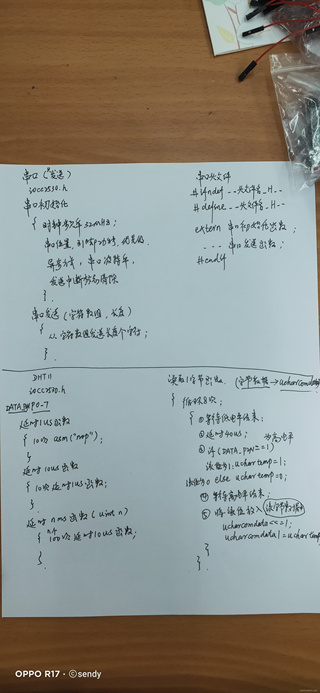 串口（发送）
iocc2530.h
串口初始化
{ 时钟频率32MHz；
串口位置，
异步方式，串口波特率，
发送中断标志清除
}
串口发送（字符数组，长度）
{ 从字符数组发送长度个字符；
}
串口头文件
#ifndef __头文件名_H__
#define __头文件名_H__
extern 串口初始化函数；
... 串口发送函数；
#endif
DHT11
iocc2530.h
DATA P0-7
延时1us函数
{ 10次 asm("nop");
}
延时10us函数
{ 10次延时1us函数；
}
延时n ms函数（uint n）
{ 100次延时10us函数；
}
读取1字节函数.
{ 循环8次；
{ ①等待低电平结束；
②延时40us；
为高电平
③ if (DATA_PIN==1)
uchar temp=1;
else uchar temp=0;
④ 等待高电平结束；
⑤ 将该位放入
ucharcomdata<<=1;
ucharcomdata|=uchartemp
}
}
OPPO R17 · ⓒsendy